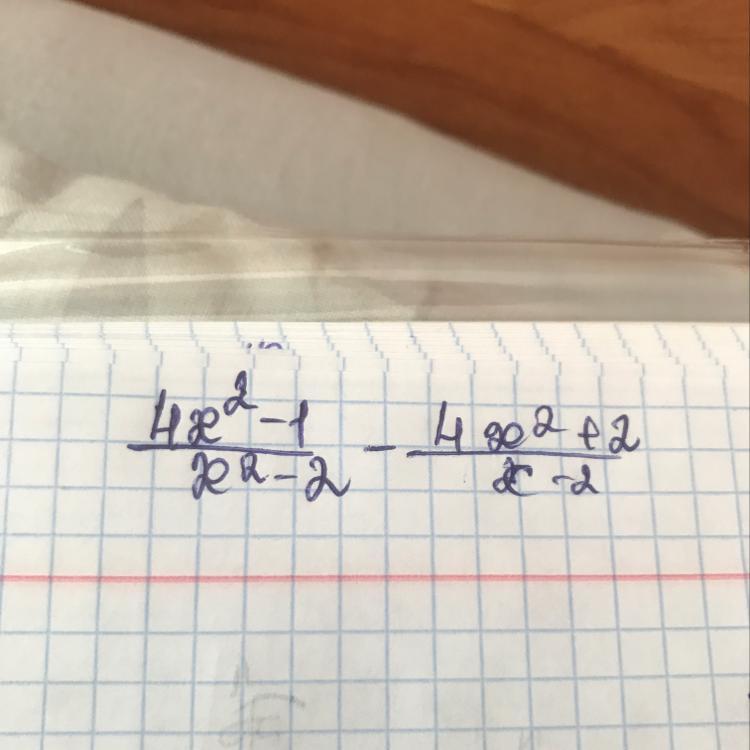 4x² - 1 / x² - 2 - 4x² + 2 / x - 2